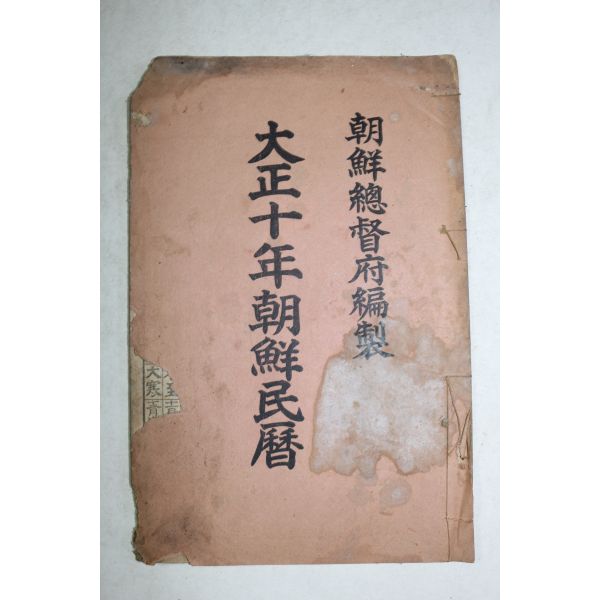 朝鮮總督府編製
大正十年朝鮮民曆
大寒